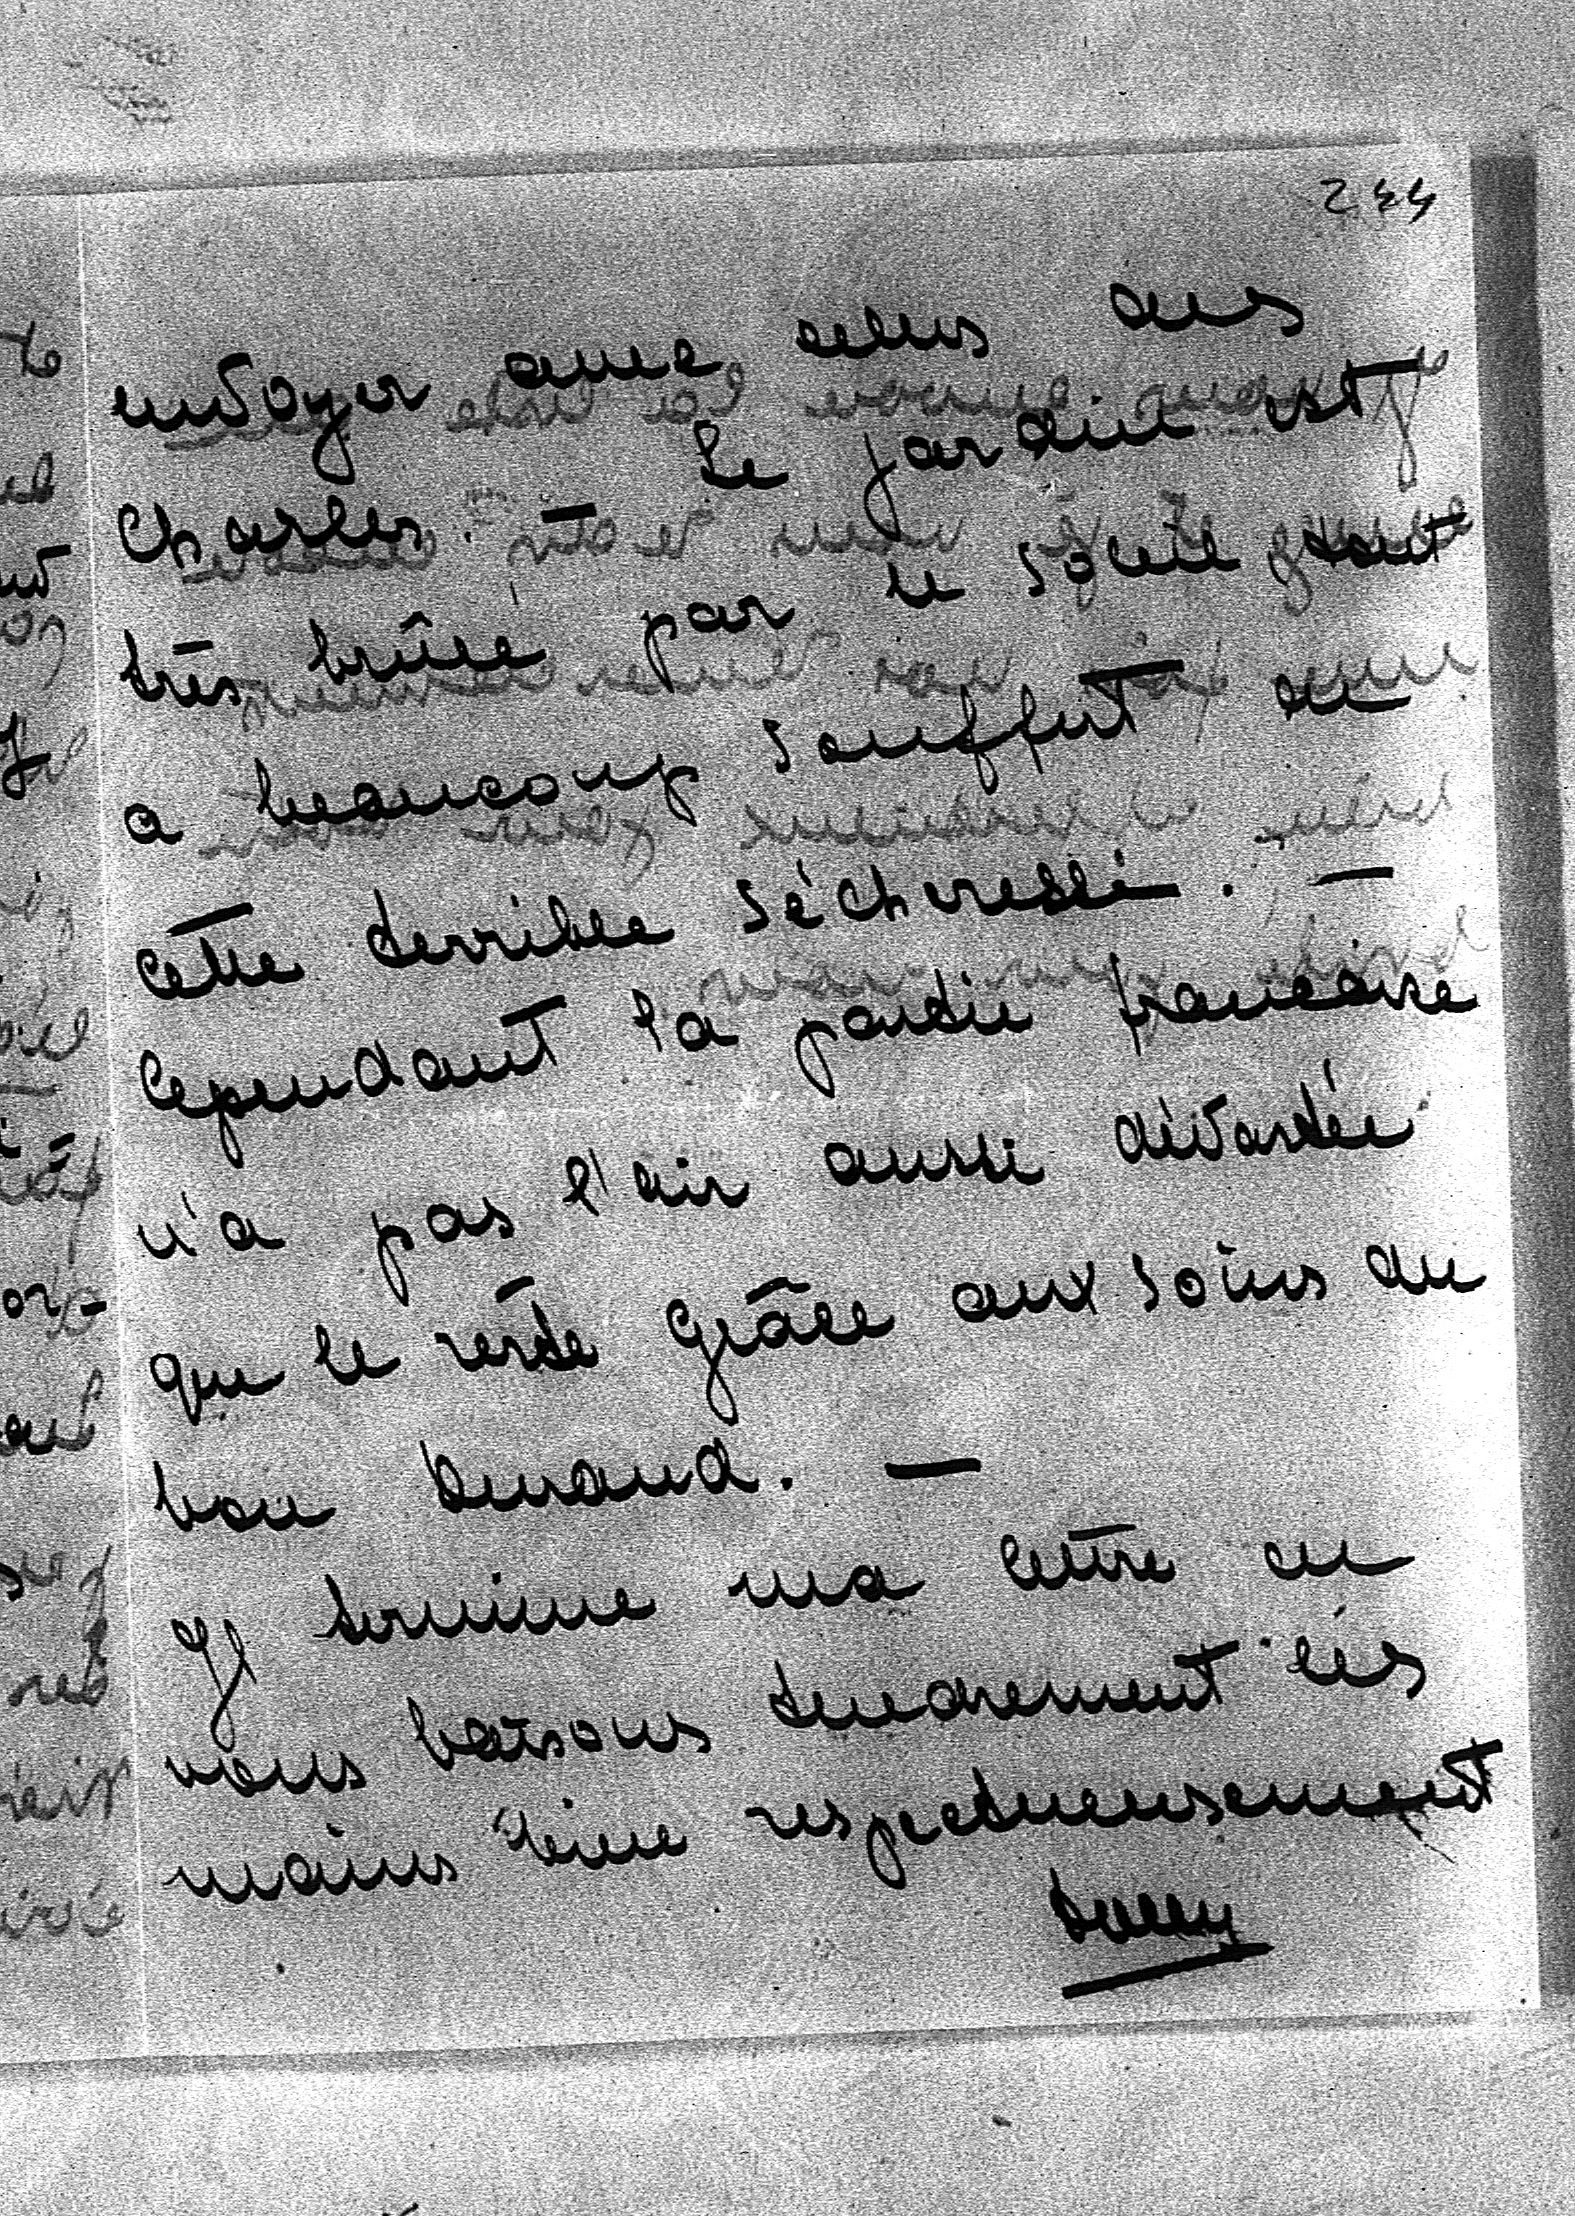 244
envoyer avec celles des
Charles. — Le jardin est
très brûlé par le soleil tout
a beaucoup souffert de
cette terrible sécheresse. —
Cependant la partie française
n'a pas l'air aussi dévastée
que le reste grâce aux soins du
bon Durand. —
Je termine ma lettre en
vous baisons tendrement les
mains bien respectueusement
Dolly